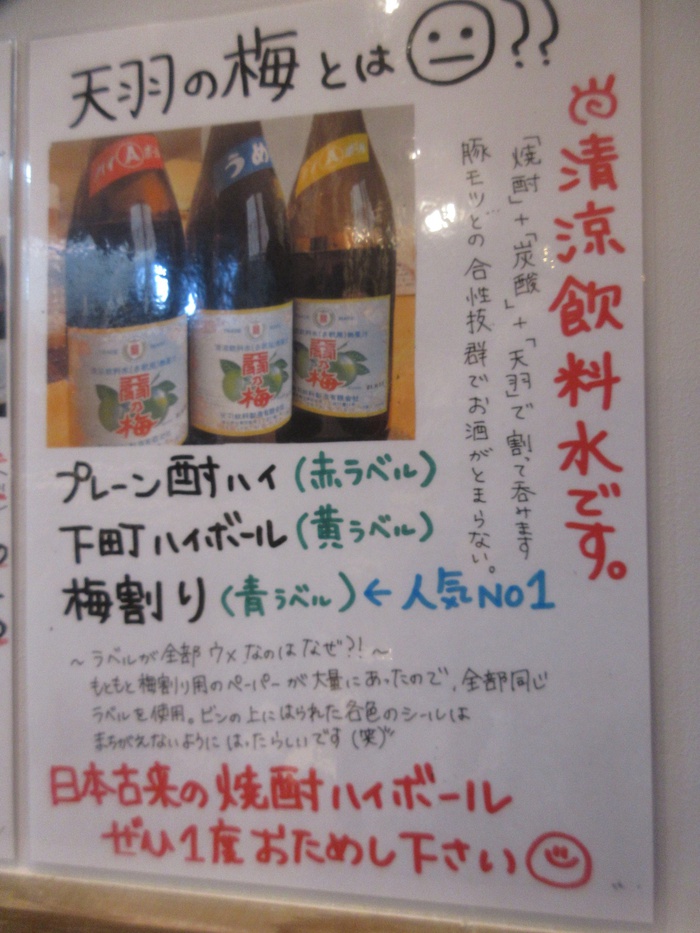 天羽の梅とは??
清涼飲料水です。
「焼酎」+「炭酸」+「天羽」で割って呑みます
豚モツとの合性抜群でお酒がとまらない。
うめ
の梅
の梅
の梅
プレーン酎ハイ(赤ラベル)
下町ハイボール(黄ラベル)
梅割り(青ラベル)←人気NO1
~ラベルが全部ウメなのはなぜ?!~
もともと梅割り用のペーパーが大量にあったので、全部同じ
ラベルを使用。ビンの上にはられた各色のシールは
まちがえないようにはったらしいです(笑)
日本古来の焼酎ハイボール
ぜひ1度おためし下さい